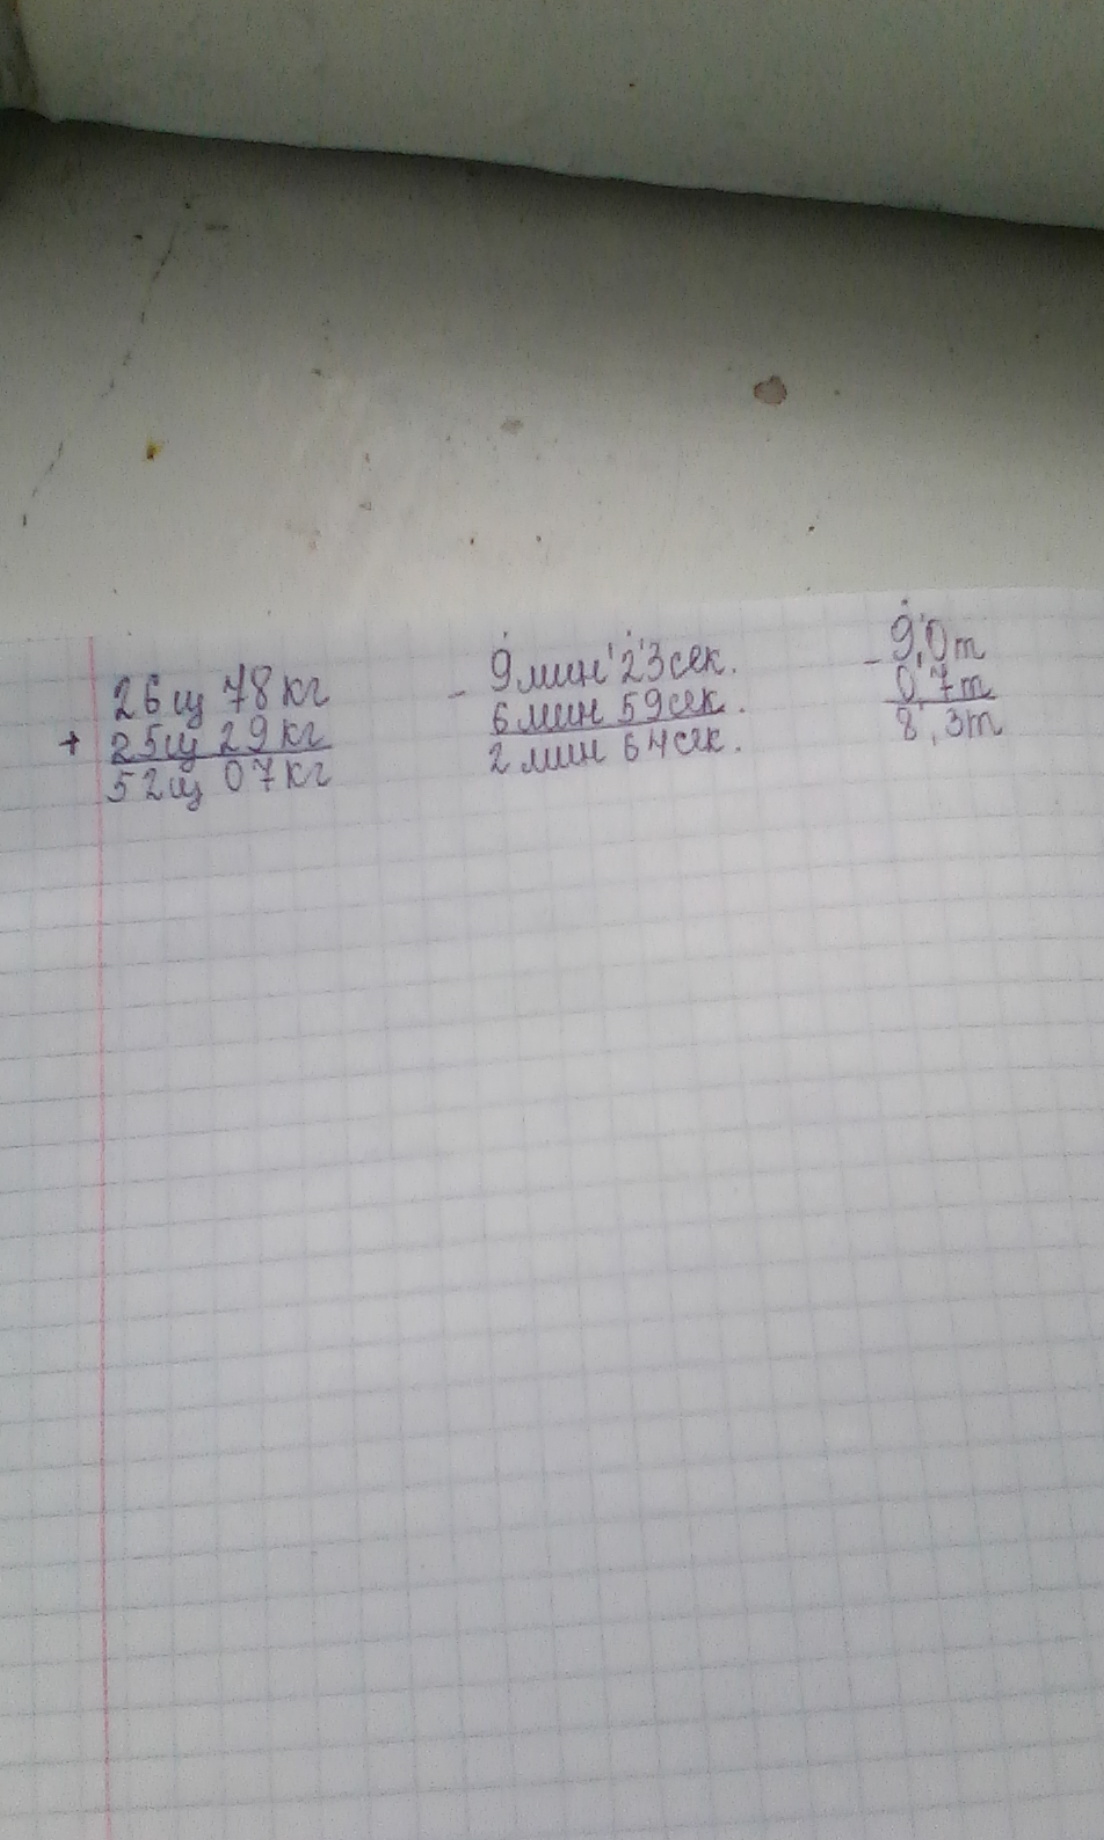 26 ц 78 кг
+ 25 ц 29 кг
52 ц 07 кг
9 мин 23 сек.
- 6 мин 59 сек.
2 мин 64 сек.
9,0 т
- 0,7 т
8,3 т